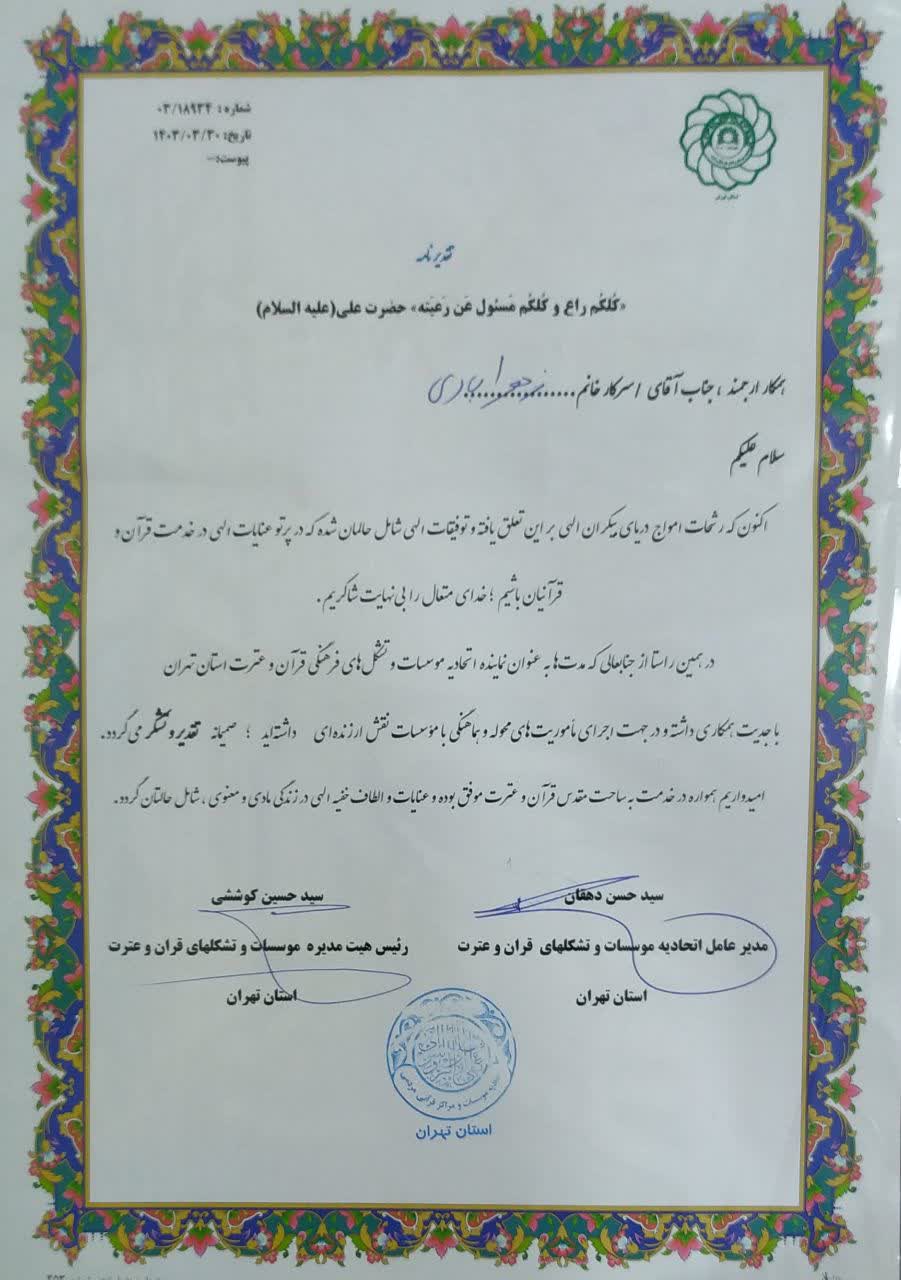 شماره: ۰۳/۱۸۹۳۴
تاریخ: ۱۴۰۳/۰۳/۳۰
پیوست:-
استان تهران
تقدیرنامه
«کُلکُم راعٍ و کُلکُم مَسئول عَن رَعیَته» حضرت علی(علیه السلام)
همکار ارجمند ، جناب آقای / سرکار خانم
سلام علیکم
اکنون که رشحات امواج دریای بیکران الهی بر این تعلق یافته و توفیقات الهی شامل حالمان شده که در پرتو عنایات الهی در خدمت قرآن و
قرآنیان باشیم ؛ خدای متعال را بی‌نهایت شاکریم .
در همین راستا از جنابعالی که مدت‌ها به عنوان نماینده اتحادیه موسسات و تشکل‌های فرهنگی قرآن و عترت استان تهران
با جدیت همکاری داشته و در جهت اجرای مأموریت‌های محوله و هماهنگی با مؤسسات نقش ارزنده‌ای داشته‌اید ؛ صمیمانه تقدیر و تشکر می‌گردد.
امیدواریم همواره در خدمت به ساحت مقدس قرآن و عترت موفق بوده و عنایات و الطاف خفیه الهی در زندگی مادی و معنوی ، شامل حالتان گردد.
سید حسن دهقان
مدیر عامل اتحادیه موسسات و تشکلهای قران و عترت
استان تهران
سید حسین کوششی
رئیس هیت مدیره موسسات و تشکلهای قران و عترت
استان تهران
اتحادیه موسسات و مراکز قرآنی مردمی
استان تهران